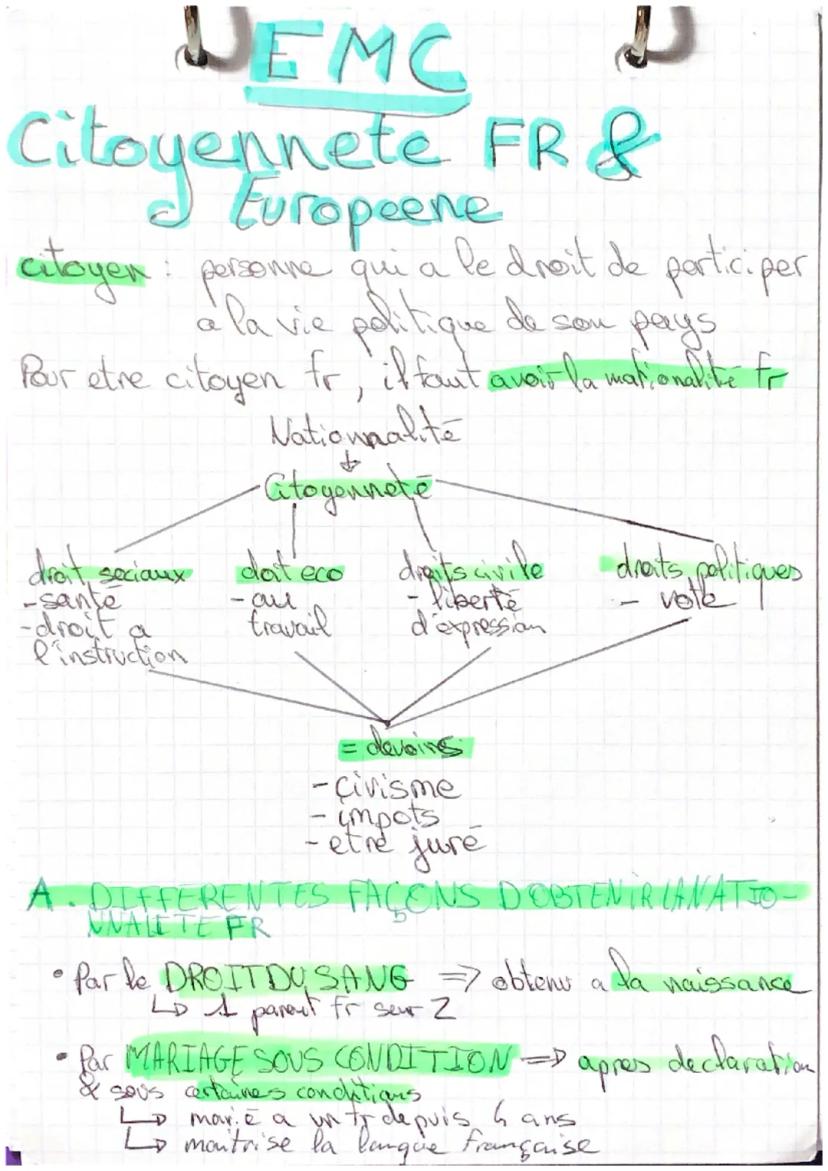 EMC
Citoyennete FR &
Européene
citoyen : personne qui a le droit de participer
a la vie politique de son pays
Pour etre citoyen fr, il faut avoir la nationalité fr
Nationnalité
↓
Citoyenneté
droit sociaux doit eco droits civile droits politiques
- santé - au - liberté - vote
- droit a travail d'expression
l'instruction
= devoirs
- çivisme
- impots
- etre juré
A. DIFFERENTES FAÇONS D'OBTENIR LA NATIO-
NNALITE FR
• Par le DROIT DU SANG => obtenu a la naissance
↳ 1 parent fr seur 2
• Par MARIAGE SOUS CONDITION => apres declaration
& sous certaines conditions
↳ marié a un fr depuis 4 ans
↳ maitrise la langue française